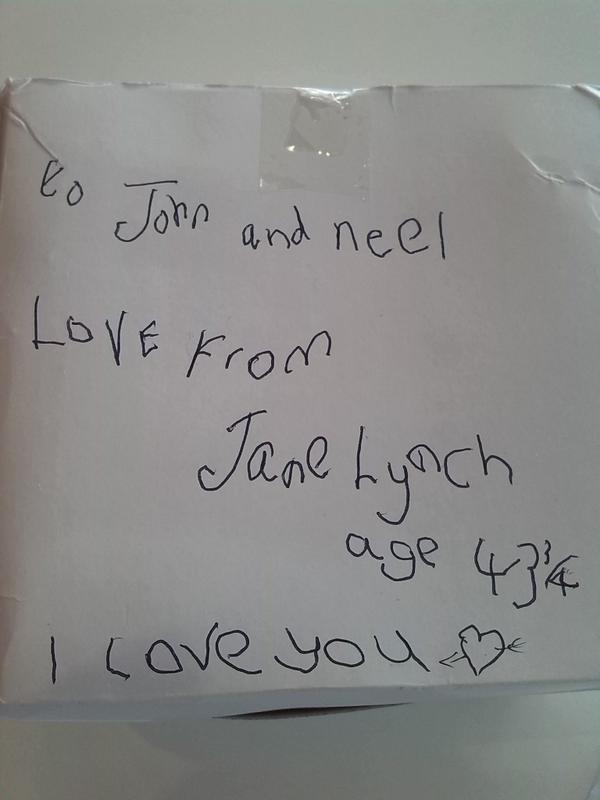 to John and neel
LOVE From
Jane Lynch
age 43 3/4
I LOVe you